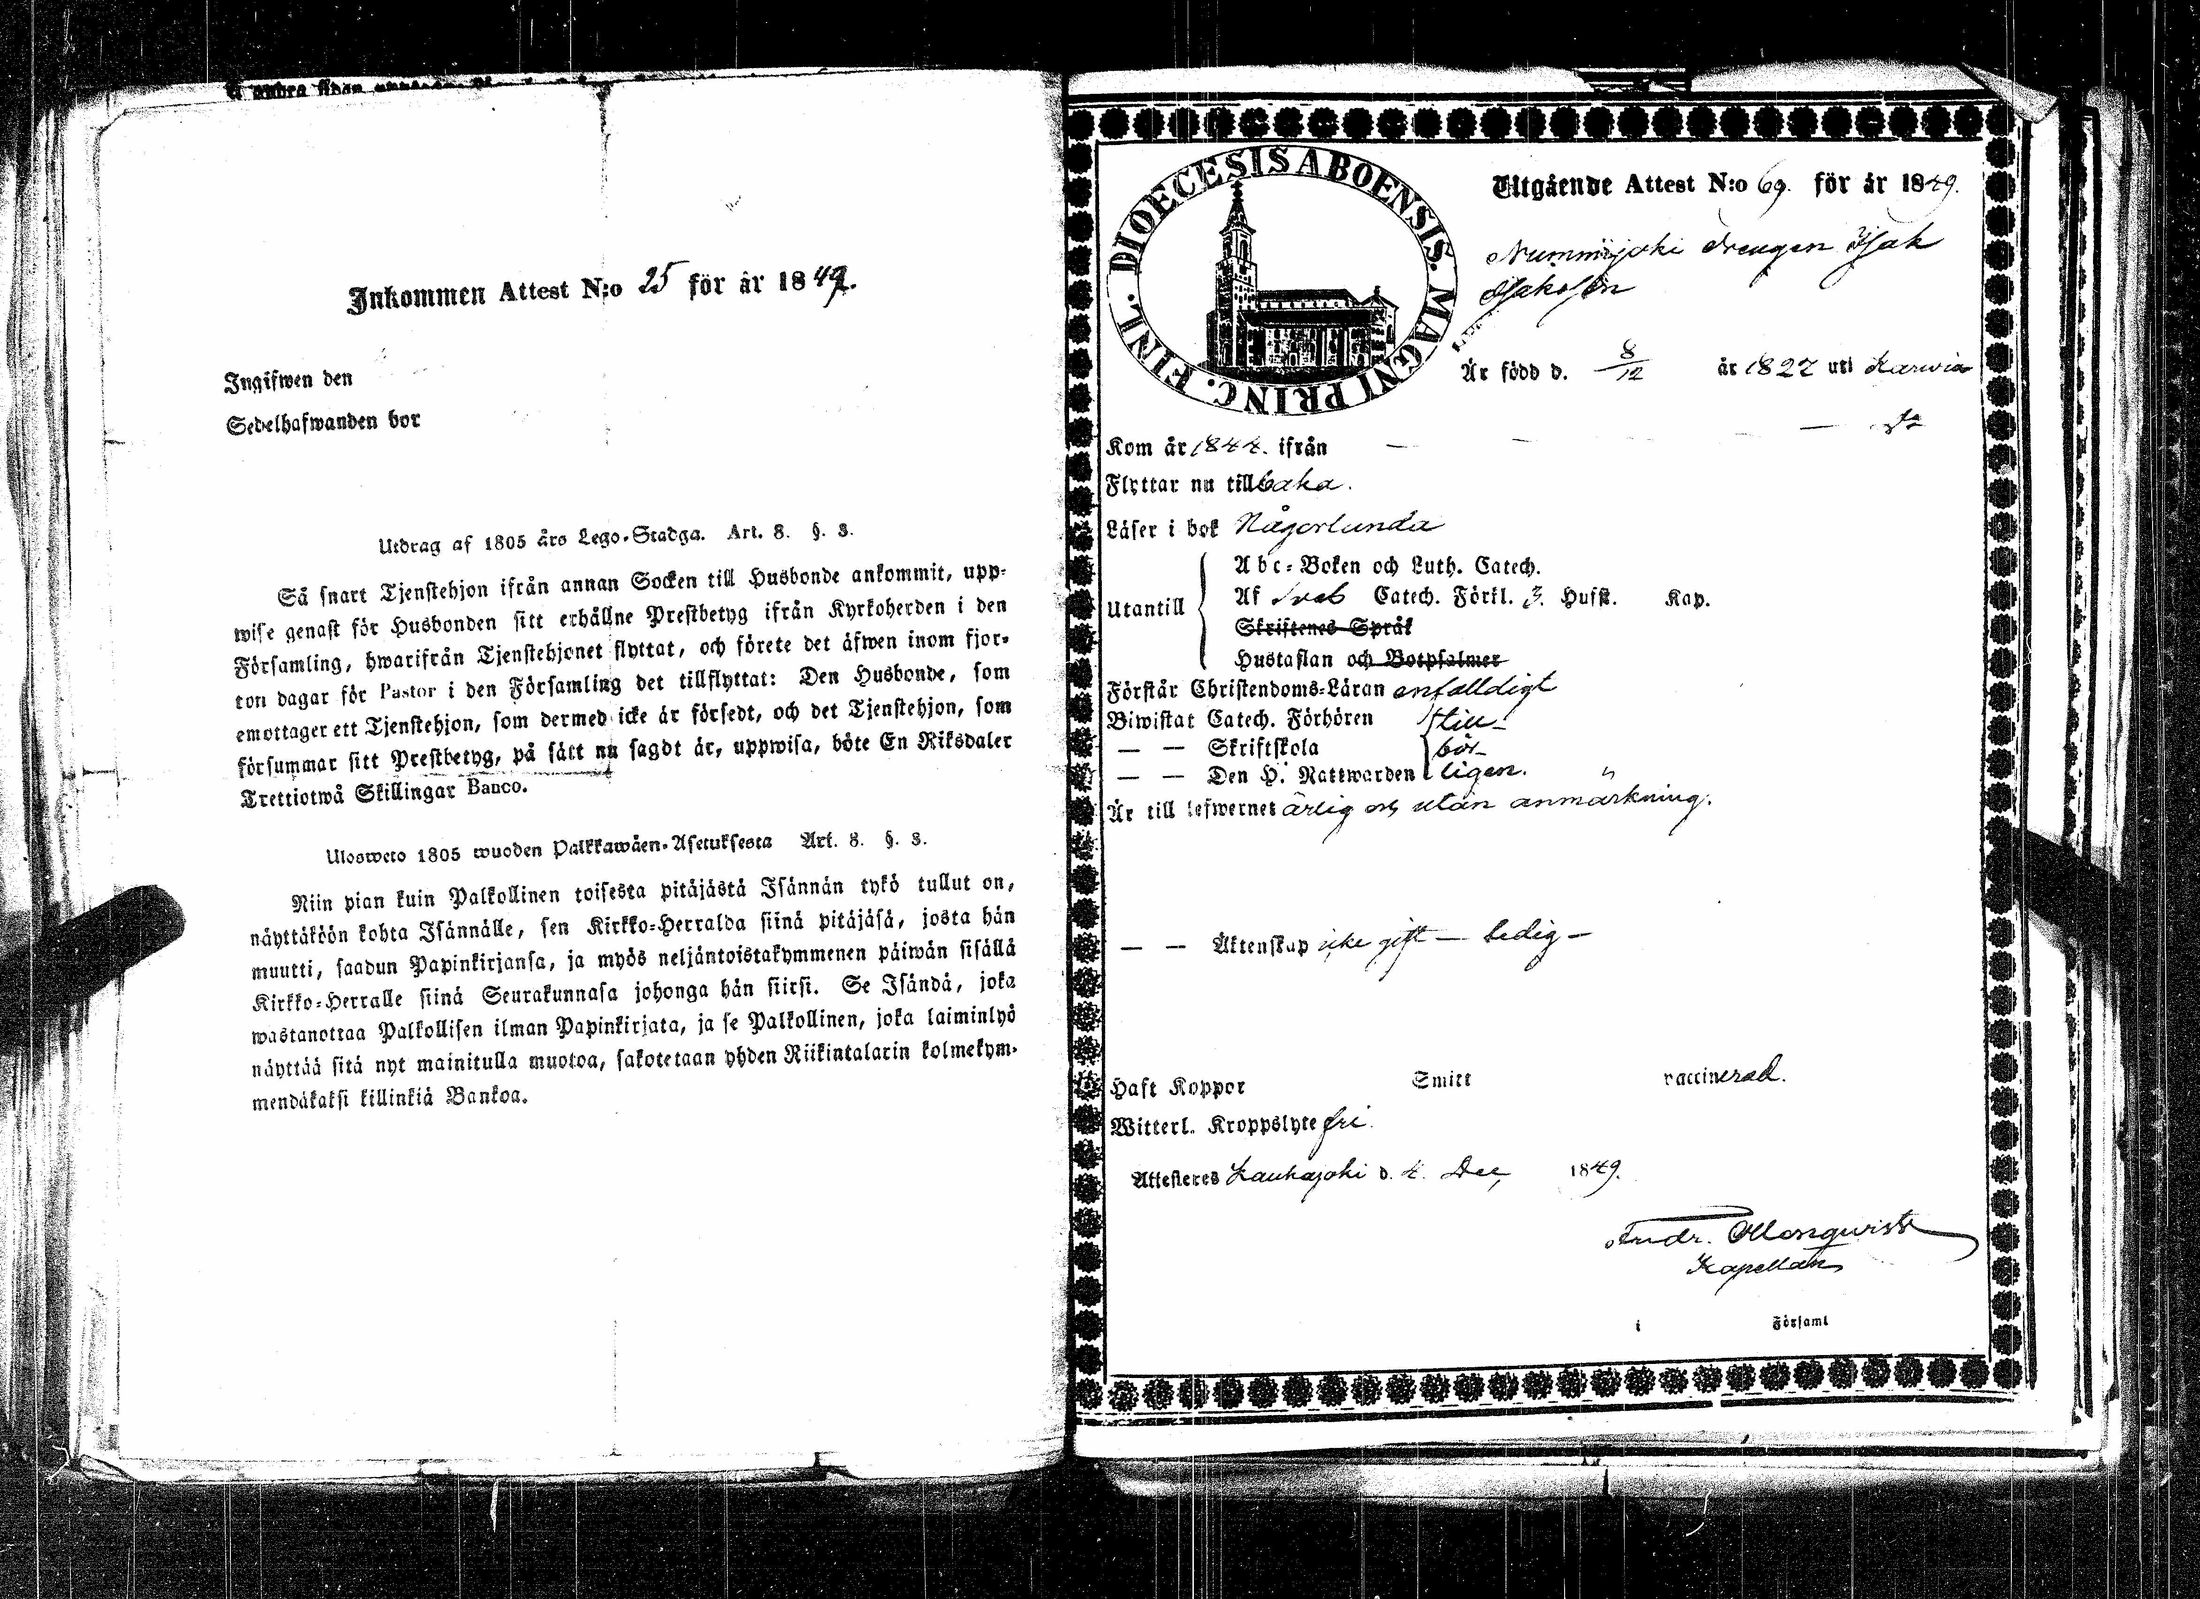 Inkommen Attest N:o 25 för år 1849.
Ingifwen den
Sedelhafwanden bor
Utdrag af 1805 års Lego-Stadga. Art. 8. §. 3.
Så snart Tjenstehjon ifrån annan Socken till Husbonde ankommit, upp-
wise genast för Husbonden sitt erhållne Prestbetyg ifrån Kyrkoherden i den
Församling, hwarifrån Tjenstehjonet flyttat, och förete det äfwen inom fjor-
ton dagar för Pastor i den Församling det tillflyttat: Den Husbonde, som
emottager ett Tjenstehjon, som dermed icke är försedt, och det Tjenstehjon, som
försummar sitt Prestbetyg, på sätt nu sagdt är, uppwisa, böte En Riksdaler
Trettiotwå Skillingar Banco.
Ulosweto 1805 wuoden Palkkawäen-Asetuksesta Art. 8. §. 3.
Niin pian kuin Palkollinen toisesta pitäjästä Isännän tykö tullut on,
näyttäköön kohta Isännälle, sen Kirkko-Herralda siinä pitäjäsä, josta hän
muutti, saadun Papinkirjansa, ja myös neljäntoistakymmenen päiwän sisällä
Kirkko-Herralle siinä Seurakunnasa johonga hän siirsi. Se Isändä, joka
wastanottaa Palkollisen ilman Papinkirjata, ja se Palkollinen, joka laiminlyö
näyttää sitä nyt mainitulla muotoa, sakotetaan yhden Riikintalarin kolmekym-
mendäkaksi killinkiä Bankoa.
DIOECESIS ABOENSIS. MAGNI PRINC. FINL.
Utgående Attest N:o 69. för år 1849.
Nummijoki drengen Isak
Isaksson
Är född d. 8/12 år 1827 uti Karvia
Kom år 1844. ifrån — — —
Flyttar nu tillbaka.
Läser i bok Någorlunda
Utantill
Abc-Boken och Luth. Catech.
Af Sveb Catech. Förkl. 3. Hufst. Kap.
Skriftenes Språk
Hustaflan och Botpsalmer
Förstår Christendoms-Läran enfaldigt
Biwistat Catech. Förhören till-
— — Skriftskola bör-
— — Den H. Nattwarden ligen.
Är till lefwernet ärlig och utan anmärkning.
— — Äktenskap icke gift — ledig —
Haft Koppor Smitt vaccinerad.
Witterl. Kroppslyte fri.
Attesteres Kauhajoki d. 4. Dec, 1849.
Kapellan
i Församl